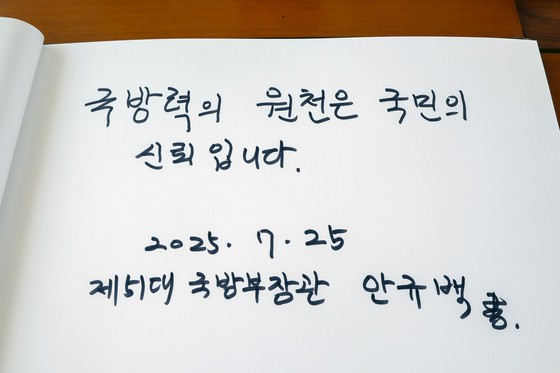 국방력의 원천은 국민의
신뢰입니다.
2025. 7. 25
제51대 국방부장관 안규백 書.